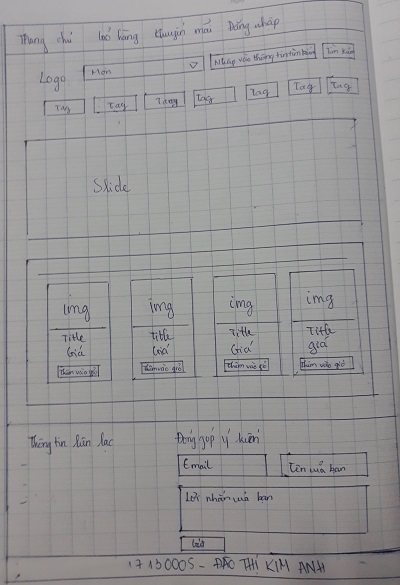 Trang chủ Giỏ hàng Khuyến mãi Đăng nhập
Logo Món Nhập vào thông tin tìm kiếm Tìm kiếm
Tag Tag Tang Tag Tag Tag Tag
Slide
img img img img
Title Title Title Title
Giá Giá Giá giá
Thêm vào giỏ Thêm vào giỏ Thêm vào giỏ Thêm vào giỏ
Thông tin liên lạc Đóng góp ý kiến
Email Tên của bạn
Lời nhắn của bạn
Gửi
1713000S - ĐÀO THỊ KIM ANH